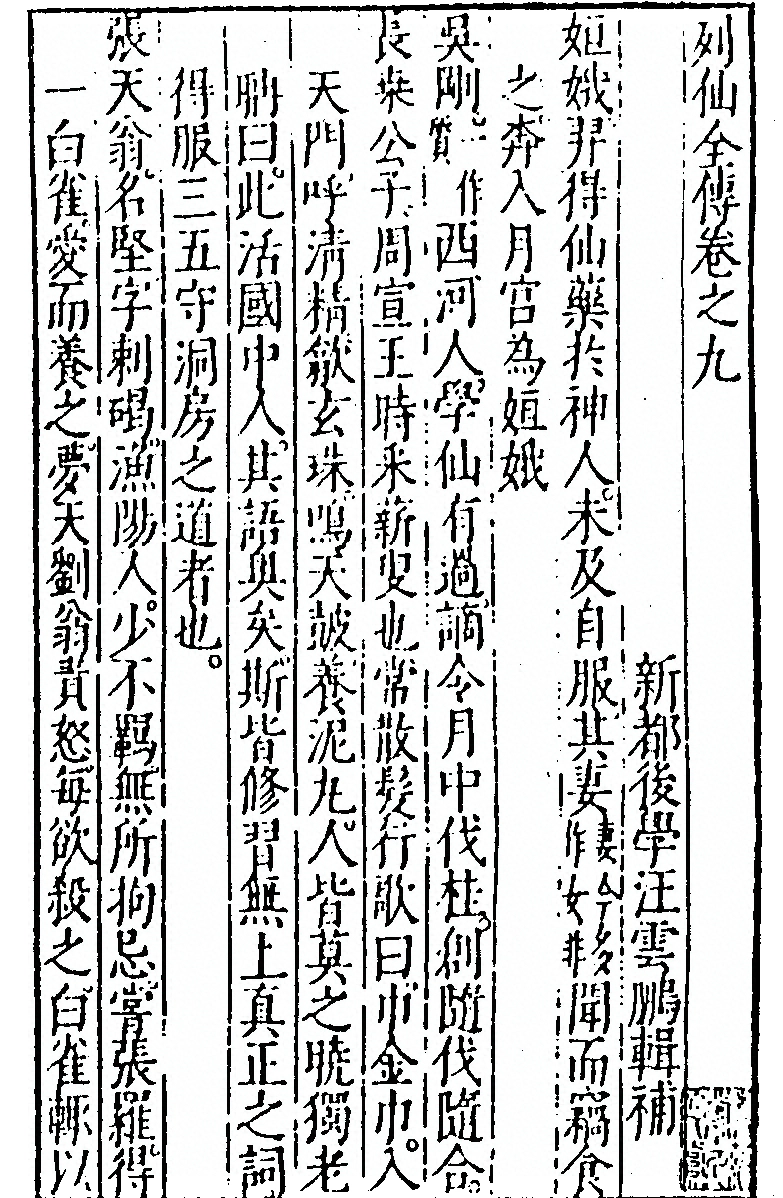 列仙全傳卷之九
新都後學汪雲鵬輯補
姮娥羿得仙藥於神人。未及自服其妻妻今多作女非聞而竊食
之。奔入月宮為姮娥
吳剛。一作質西河人。學仙有過謫令月中伐桂。創隨伐隨合。
長桒公子。周宣王時采薪叟也常散髮行歌曰巾金巾。入
天門呼清精歙玄珠。鳴天皷養泥丸。人皆莫之曉獨老
聃曰。此活國中人。其語與矣斯皆修習無上真正之詞
得服三五守洞房之道者也。
張天翁。名堅字刺碣漁陽人。少不羈無所拘忌嘗張羅得
一白雀愛而養之夢天劉翁責怒每欲殺之白雀輒以